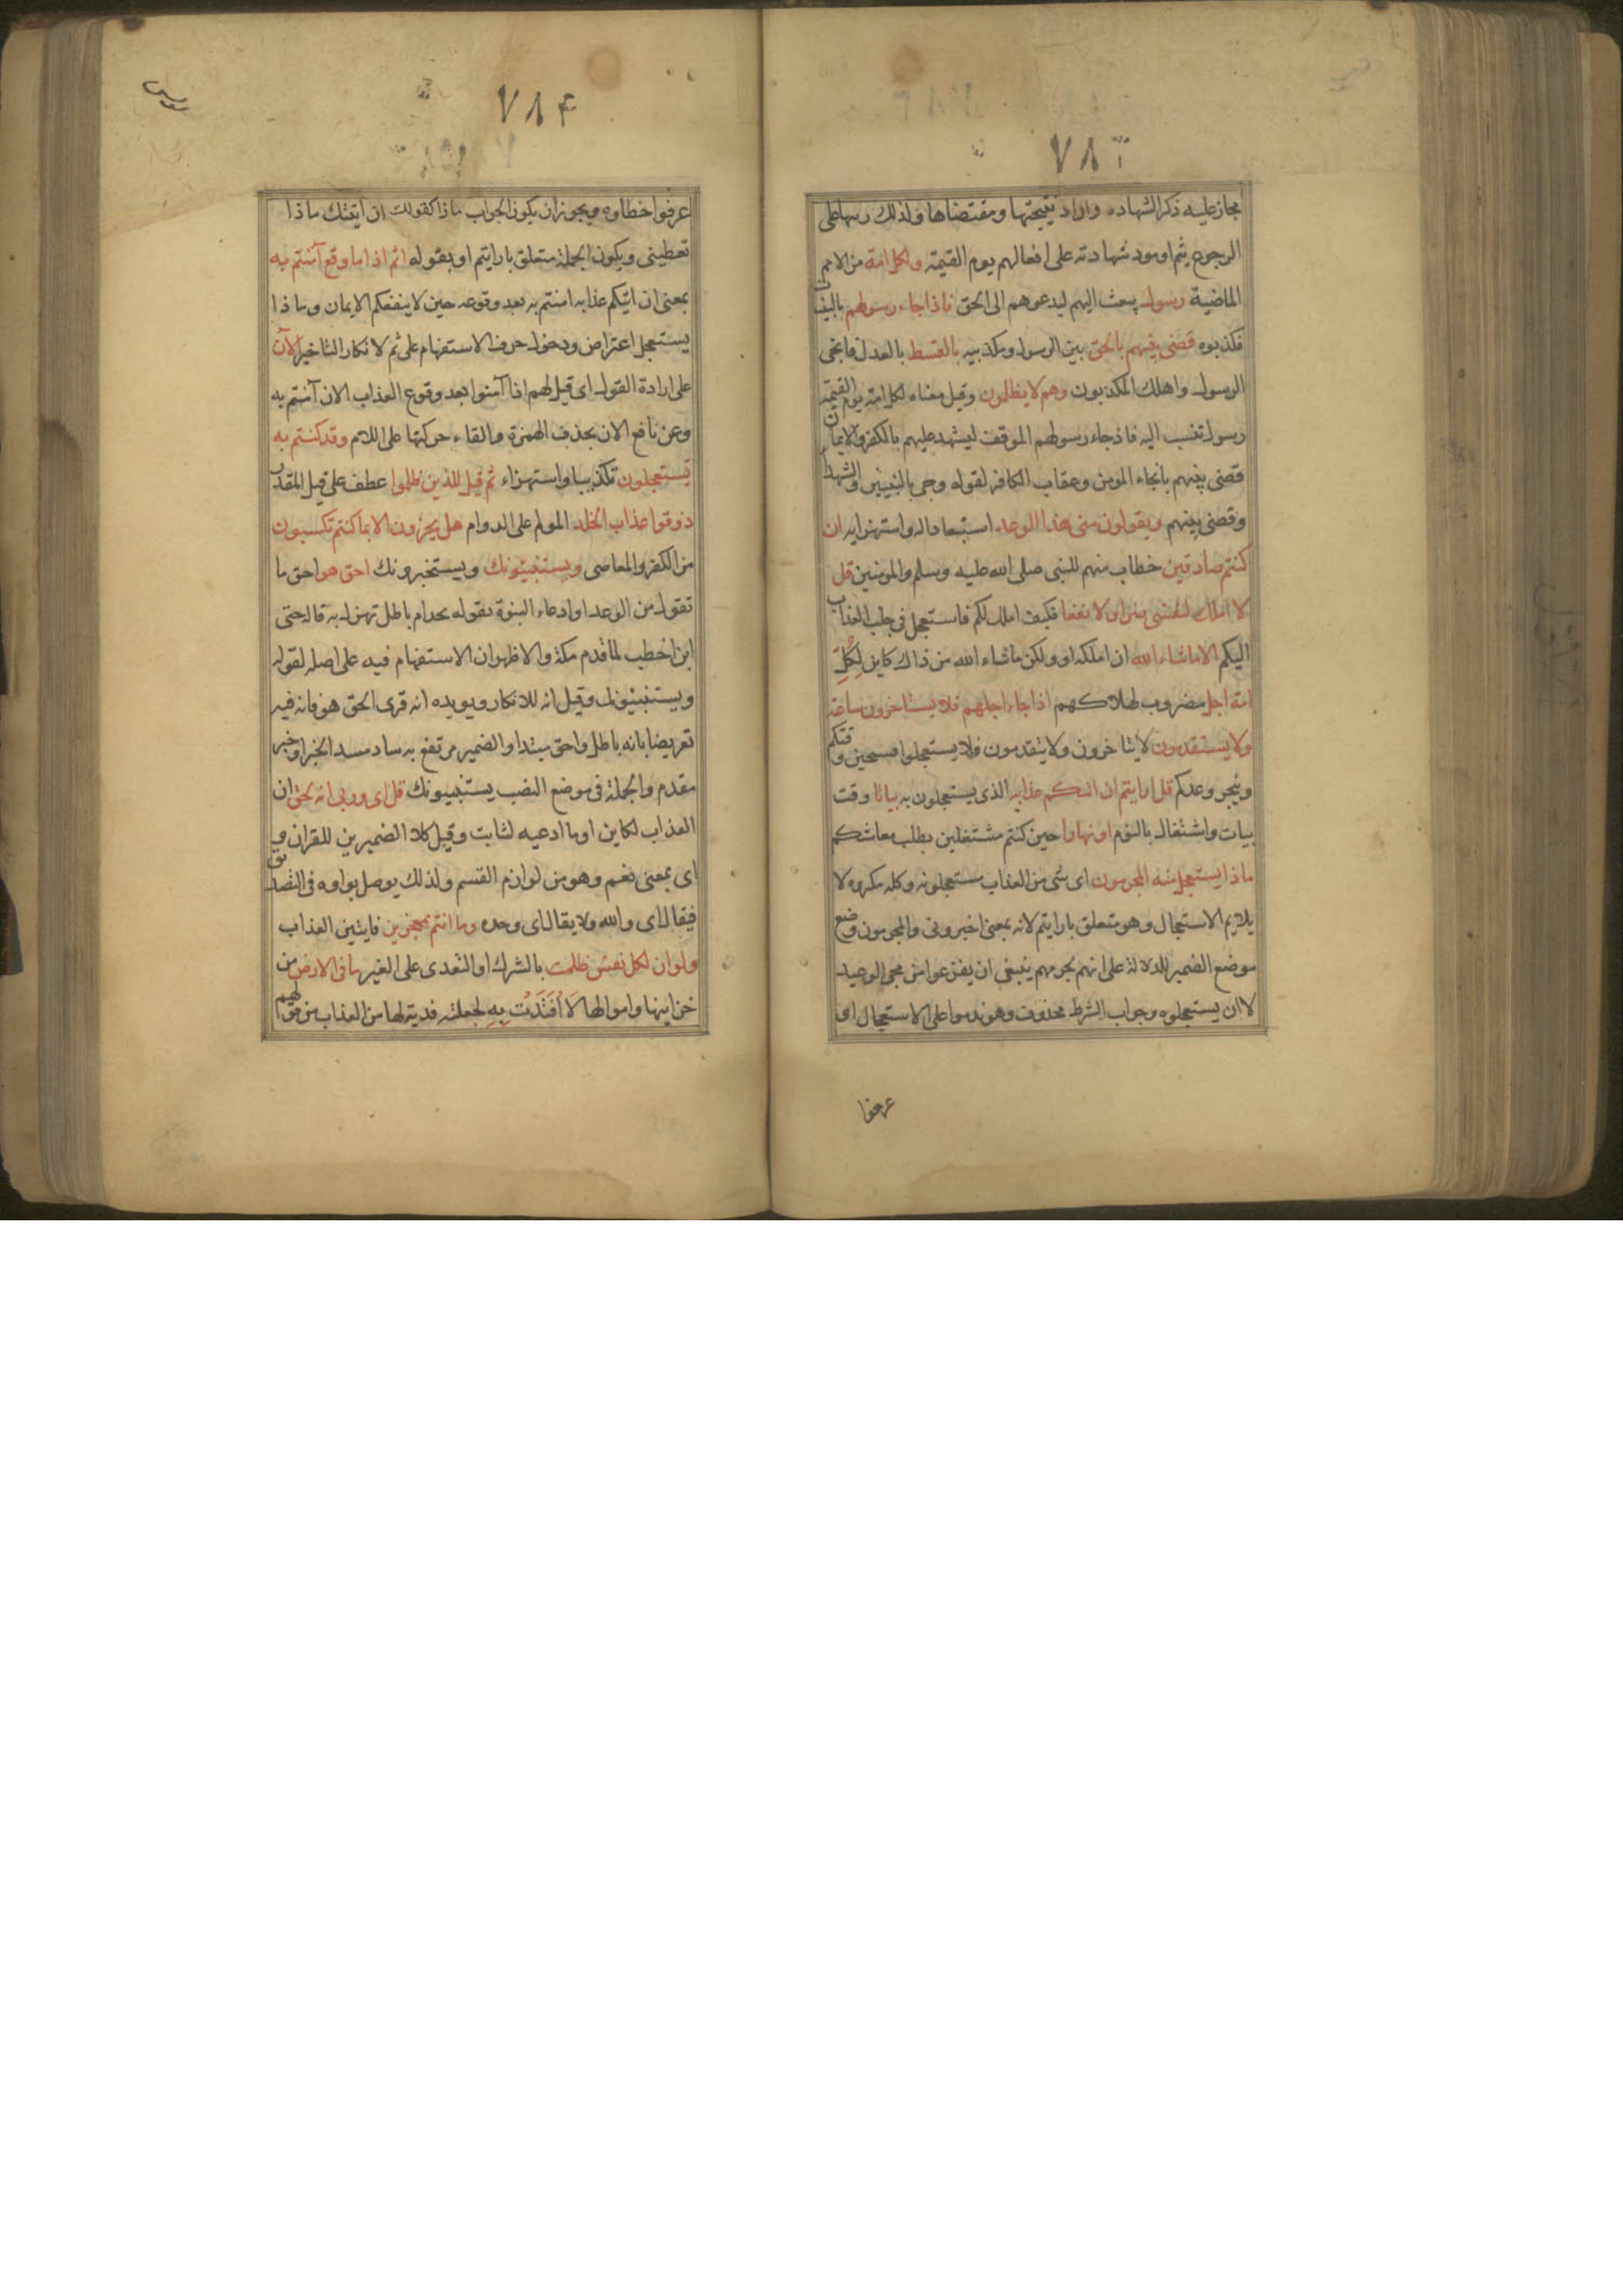 ٧٨٣
مجاز عليه ذكر الشهاده واراد نتيجتها ومقتضاها ولذلك رتبها على
الرجوع بثم او مودشهادته على افعالهم يوم القيمة ولكل امة من الامم
الماضية رسول يبعث اليهم ليدعوهم الى الحق فاذا جاء رسولهم بالبينات
فكذبوه قضى بينهم بالحق بين الرسول ومكذبيه بالقسط بالعدل فانجى
الرسول واهلك المكذبون وهم لا يظلمون وقيل معناه لكل امة يوم القيمة
رسول تنسب اليه فاذ جاء رسولهم الموقف ليشهد عليهم بالكفر والايمان
قضى بينهم بانجاء المومن وعقاب الكافر لقوله وجى بالنبيين والشهدا
وقضى بينهم ويقولون متى هذا الوعد استبعادا له واستهزا به ان
كنتم صادقين خطاب منهم للنبى صلى الله عليه وسلم والمومنين قل
لا املك لنفسى ضرا ولا نفعا فكيف املك لكم فاستعجل فى جلب العذاب
اليكم الا ماشاء الله ان املكه او ولكن ماشاء الله من ذلك كاين لكل
امة اجل مضروب لهلاكهم اذا جاء اجلهم فلا يستاخرون ساعة
ولا يستقدمون لا يتاخرون ولا يتقدمون فلا يستعجلوا فسيحين وقتكم
وينجز وعدكم قل ارايتم ان اتيكم عذابه الذى يستعجلون به بياتا وقت
بيات واشتغال بالنوم او نهارا حين كنتم مشتغلين بطلب معاشكم
ماذا يستعجل منه المجرمون اى شى من العذاب مستعجلونه وكله مكروه لا
يلايم الاستعجال وهو متعلق بارايتم لانه بمعنى اخبرونى والمجرمون وضع
موضع الضمير للدلالة على انهم لجرمهم ينبغى ان يفزعوا من مجى الوعيد
لا ان يستعجلوه وجواب الشرط محذوف وهو ندموا على الاستعجال او
عرفوا
٧٨۴
عرفوا خطاوه ويجوز ان يكون الجواب ماذا كقولك ان اتيتك ماذا
تعطينى ويكون الجملة متعلق بارايتم او بقوله اثم اذا ما وقع آمنتم به
بمعنى ان اتيكم عذابه امنتم به بعد وقوعه حين لا ينفعكم الايمان وماذا
يستعجل اعتراض ودخول حرف الاستفهام على ثم لانكار التاخير الآن
على ارادة القول اى قيل لهم اذا آمنوا بعد وقوع العذاب الان آمنتم به
وعن نافع الان بحذف الهمزة والقاء حركتها على اللام وقد كنتم به
تستعجلون تكذيبا واستهزاء ثم قيل للذين ظلموا عطف على قيل المقدر
ذوقوا عذاب الخلد المولم على الدوام هل يجزون الا بما كنتم تكسبون
من الكفر والمعاصى ويستنبئونك ويستخبرونك احق هو احق ما
تقول من الوعد او ادعاء النبوة تقوله بجد ام باطل تهزل به قاله حيى
ابن اخطب لما قدم مكة والاظهر ان الاستفهام فيه على اصله لقوله
ويستنبئونك وقيل انه للانكار ويويده انه قرى الحق هو فانه فيه
تعريضا بانه باطل واحق مبتدا والضمير مرتفع به ساد مسد الخبر او خبر
مقدم والجملة فى موضع النصب يستنبيونك قل اى وربى انه لحق ان
العذاب لكاين او ما ادعيه لثابت وقيل كلا الضميرين للقران و
اى بمعنى نعم وهو من لوازم القسم ولذلك يوصل بواوه فى التصديق
فيقال اى والله ولا يقال اى وحده وما انتم بمعجزين فايتين العذاب
ولو ان لكل نفس ظلمت بالشرك او التعدى على الغير ما فى الارض من
خزاينها واموالها لَا فْتَدَتْ بِهِ لجعلته فدية لها من العذاب من قولهم